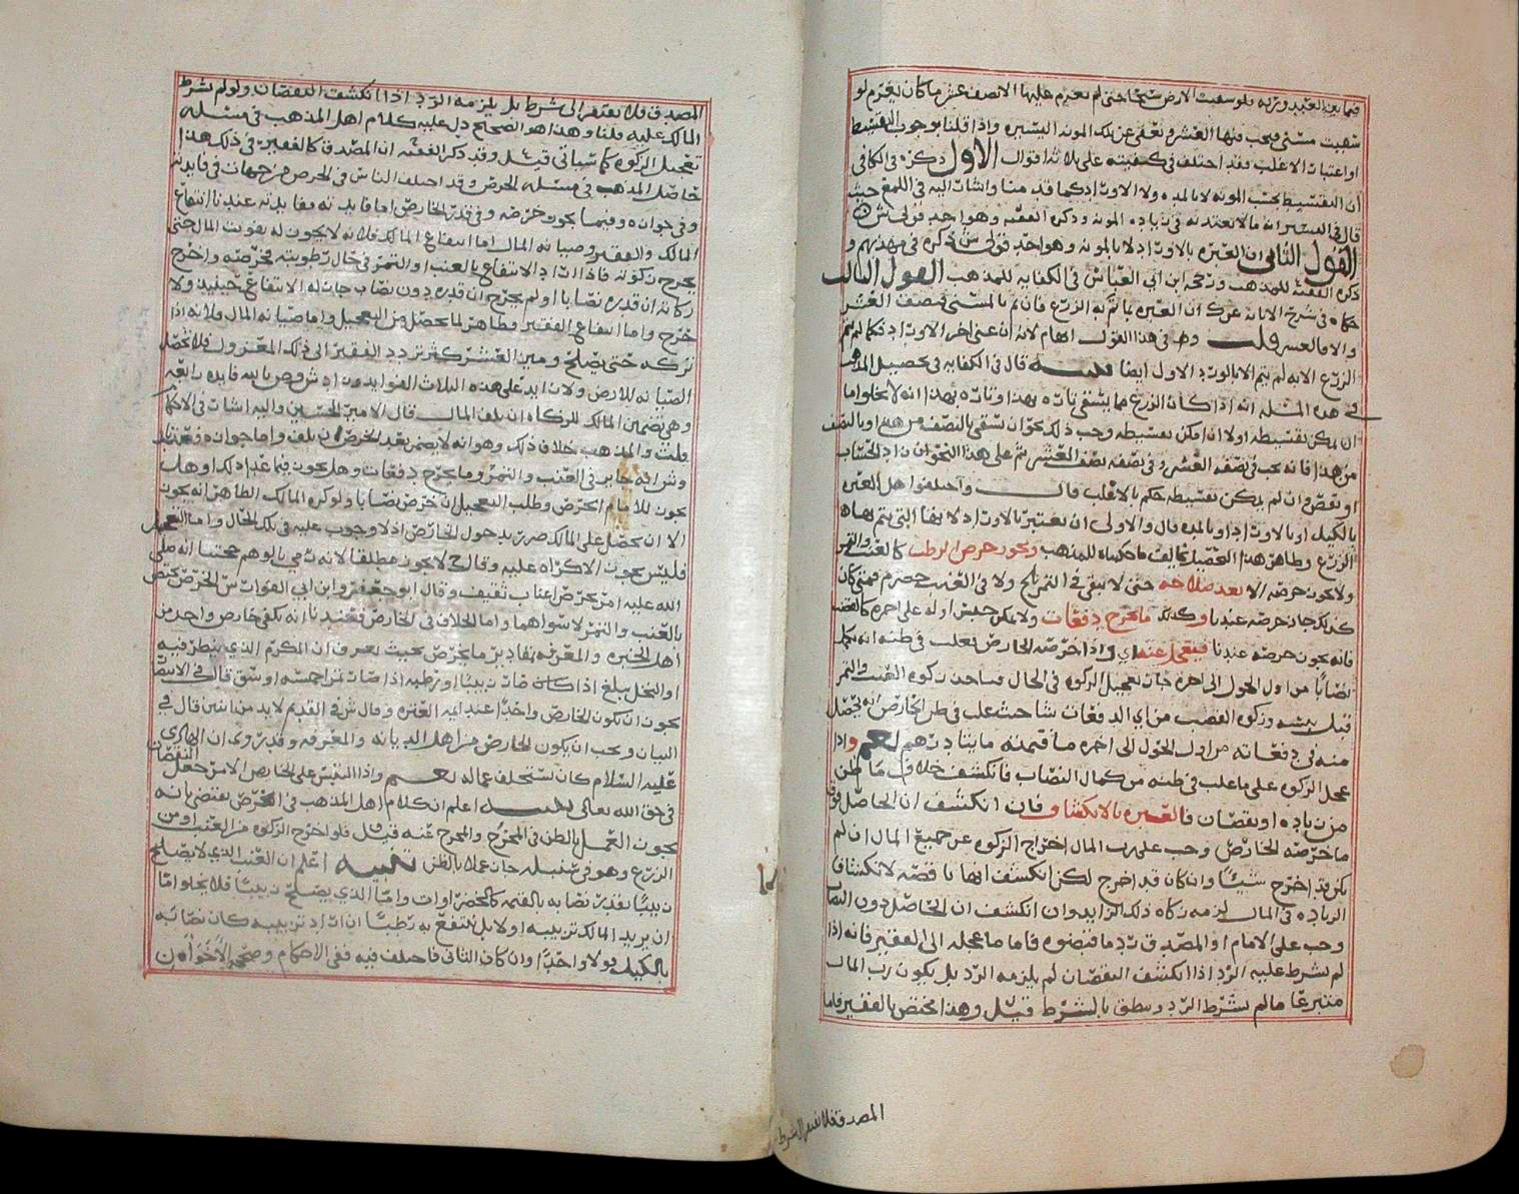 فما بعد العبيد وربه فلو سقيت الارض سيحا حتى لم تغرم عليها الا نصف عشر ما كان يغرم لو
سقيت مسنى فيجب فيها العشر ونعفى عن تلك المونه اليسيره واذا قلنا بوجوب التقسيط
او اعتبار الاغلب فقد اختلف في كيفيته على ثلاثة اقوال الاول ذكره في الكافي
أن التقسيط بحسب المونه لا بالمده ولا الاوراد كما قدمنا واشار اليه في اللمع حيث
قال في السير انه مالا تعتد به في زياده المونه وذكره الفقيه وهو احد قولي ش
القول الثاني ان العبره بالاوراد لا بالمونه وهو احد قولي ش ذكره في مهذبهم و
ذكره الفقيه للمذهب ورجحه ابن ابي العباس في الكفايه للمذهب القول الثالث
حكاه في شرح الابانه عن ك ان العبره بما تم به الزرع فان تم بالمسنى فنصف العشر
والا فالعشر قلت وهو في هذا القول ابهام لانه ان عنى اخر الاوراد فكما لم يتم
الزرع الا به لم يتم الا بالورد الاول ايضا تنبيه قال في الكفايه في تحصيل المذهب
في هذه المسئله انه اذا كان الزرع مما يسقى تاره بهذا وتاره بهذا انه لا يخلوا اما
ان يمكن تقسيطه اولا ان امكن تقسيطه وجب ذلك نحو ان سقي بالنصف من هذا وبالنصف
من هذا فانه يجب في نصفه العشر وفي نصفه نصف العشر ثم على هذا النحو ان زاد الحساب
او نقص وان لم يمكن تقسيطه حكم بالاغلب قال واختلفوا هل العبره
بالكيل او بالاوراد او بالمده قال والاولى ان يعتبر بالاوراد لانها التي يتم بها
الزرع وظاهر هذا التحصيل يخالف ما حكيناه للمذهب ويجوز خرص الرطب كالعنب والتمر
ولا يجوز خرصه الا بعد صلاحه حتى لا يبقى في التمر بلح ولا في العنب حصرم فمتى كان
كذلك جاز خرصه عندنا وكذلك ما يخرج دفعات ولا يمكن حبس اوله على اخره كالقضب
فانه يجوز خرصه عندنا فيعجل عنه اي واذا خرصه الخارص فغلب في ظنه انه يكمل
نصابا من اول الحول الى اخره جاز تعجيل الزكوه في الحال فياخذ زكوه العنب والتمر
قبل يبسه وزكوه القضب من اي الدفعات شا حيث غلب في ظن الخارص انه يحصل
منه في دفعاته من اول الحول الى اخره ما قيمته مايتا درهم نعم واذا
عجل الزكوه على ما غلب في ظنه من كمال النصاب فانكشف خلاف ما ظن
من زياده او نقصان فالعبره بالانكشاف فان انكشف ان الحاصل فوق
ما خرصه الخارص وجب على رب المال اخراج الزكوه عن جميع المال ان لم
يكن قد اخرج شيئا وان كان قد اخرج لكن انكشف انها ناقصه لانكشاف
الزياده في المال لزمه زكاه ذلك الزايد وان انكشف ان الحاصل دون النصاب
وجب على الامام او المصدق رد ما قبضوه فاما ما عجله الى الفقير فانه اذا
لم يشرط عليه الرد اذا انكشف النقصان لم يلزمه الرد بل يكون رب المال
متبرعا ما لم يشرط الرد وينطق بالشرط قيل وهذا مختص بالفقير فاما
المصدق فلا يفتقر الى شرط
المصدق فلا يفتقر الى شرط بل يلزمه الرد اذا انكشف النقصان ولو لم يشرط
المالك عليه قلنا وهذا هو الصحيح دل عليه كلام اهل المذهب في مسئله
تعجيل الزكوه كما سياتي قيل وقد ذكر الفقيه ان المصدق كالفقير في ذلك هذا
حاصل المذهب في مسئله الخرص وقد اختلف الناس في الخرص من جهات في فايدته
وفي جوازه وفيما يجوز خرصه وفي قدر الخارص اما فايدته ففايدته عندنا انتفاع
المالك والفقير وصيانه المال اما انتفاع المالك فلانه لا يجوز له تفويت المال حتى
يخرج زكوته فاذا اراد الانتفاع بالعنب او التمر في حال رطوبته فخرصه واخرج
زكاته ان قدره نصابا او لم يخرج ان قدره دون نصاب جاز له الانتفاع حينئذ ولا
حرج واما انتفاع الفقير فظاهر لما يحصل من التعجيل واما صيانه المال فلانه اذا
تركه حتى يصلح وميز العشر كثر تردد الفقير الى ذلك المعزول فلا تحصل
الصيانه للارض ولان ايد على هذه الثلاث الفوايد وزاد ش وص بالله فايده رابعه
وهي تضمين المالك للزكاه ان تلف المال قال الامير الحسين واليه اشار في الاحكام
قلت والمذهب خلاف ذلك وهو انه لا يضمن بعد الخرص ان تلف واما جوازه فعندنا
وش انه جايز في العنب والتمر وما يخرج دفعات وهل يجوز فيما عدا ذلك او هل
يجوز للامام الخرص وطلب التعجيل ان خرص نصابا ولو كره المالك الظاهر انه يجوز
الا ان يحصل على المالك ضرر بدخول الخارص اذ لا وجوب عليه في تلك الحال واما التعجيل
فليس يجوز الاكراه عليه وقال ح لا يجوز مطلقا لانه رمي بالوهم حجتنا انه صلى
الله عليه امر بخرص اعناب ثقيف وقال ابو جعفر وابن ابي الفوارس الخرص يختص
بالعنب والتمر لا سواهما واما الخلاف في الخارص فعندنا انه يكفي خارص واحد من
اهل الخبره والمعرفه بمقادير ما يخرص بحيث يعرف ان الكرم الذي ينظر فيه
او النخل يبلغ اذا كان صار زبيبا او رطبه اذا صار تمرا خمسه اوسق قال في الانتصار
يجوز ان يكون الخارص واحدا عند ايمه العتره وقال ش في القديم لا بد من اثنين قال في
البيان ويجب ان يكون الخارص من اهل الديانه والمعرفه وقد روي ان الهادي
عليه السلام كان يستخلف عماله نعم واذا التبس على الخارص الامر جعل النقصان
في حق الله تعالى تنبيه اعلم ان كلام اهل المذهب في الخرص يقتضي بانه
يجوز العمل بالظن في المخرج والمخرج عنه قيل فلو اخرج الزكوه من العنب او من
الزرع وهو في سنبله جاز عملا بالظن تنبيه اعلم ان العنب الذي لا يصلح
زبيبا يعتبر نصابه بالقيمه كالخضراوات واما الذي يصلح زبيبا فلا يخلوا اما
ان يريد المالك تزبيبه او لا بل ينتفع به رطبا ان اراد تزبيبه كان نصابه
بالكيل قولا واحدا وان كان الثاني فاختلف فيه ففي الاحكام وصححه الاخوان